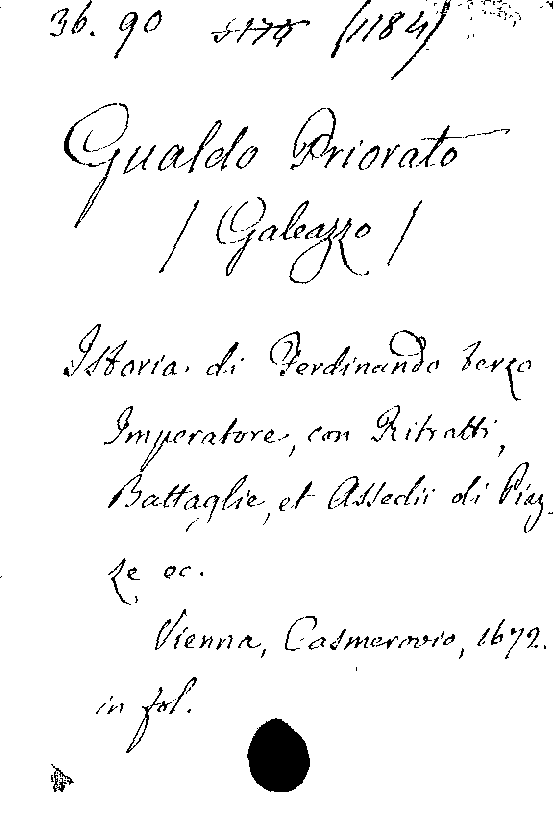 36. 90 5175 (1184)
Gualdo Priorato
/ Galeazzo /
Istoria di Ferdinando terzo
Imperatore, con Ritratti,
Battaglie, et Assedii di Piaz-
ze ec.
Vienna, Casmerovio, 1672.
in fol.